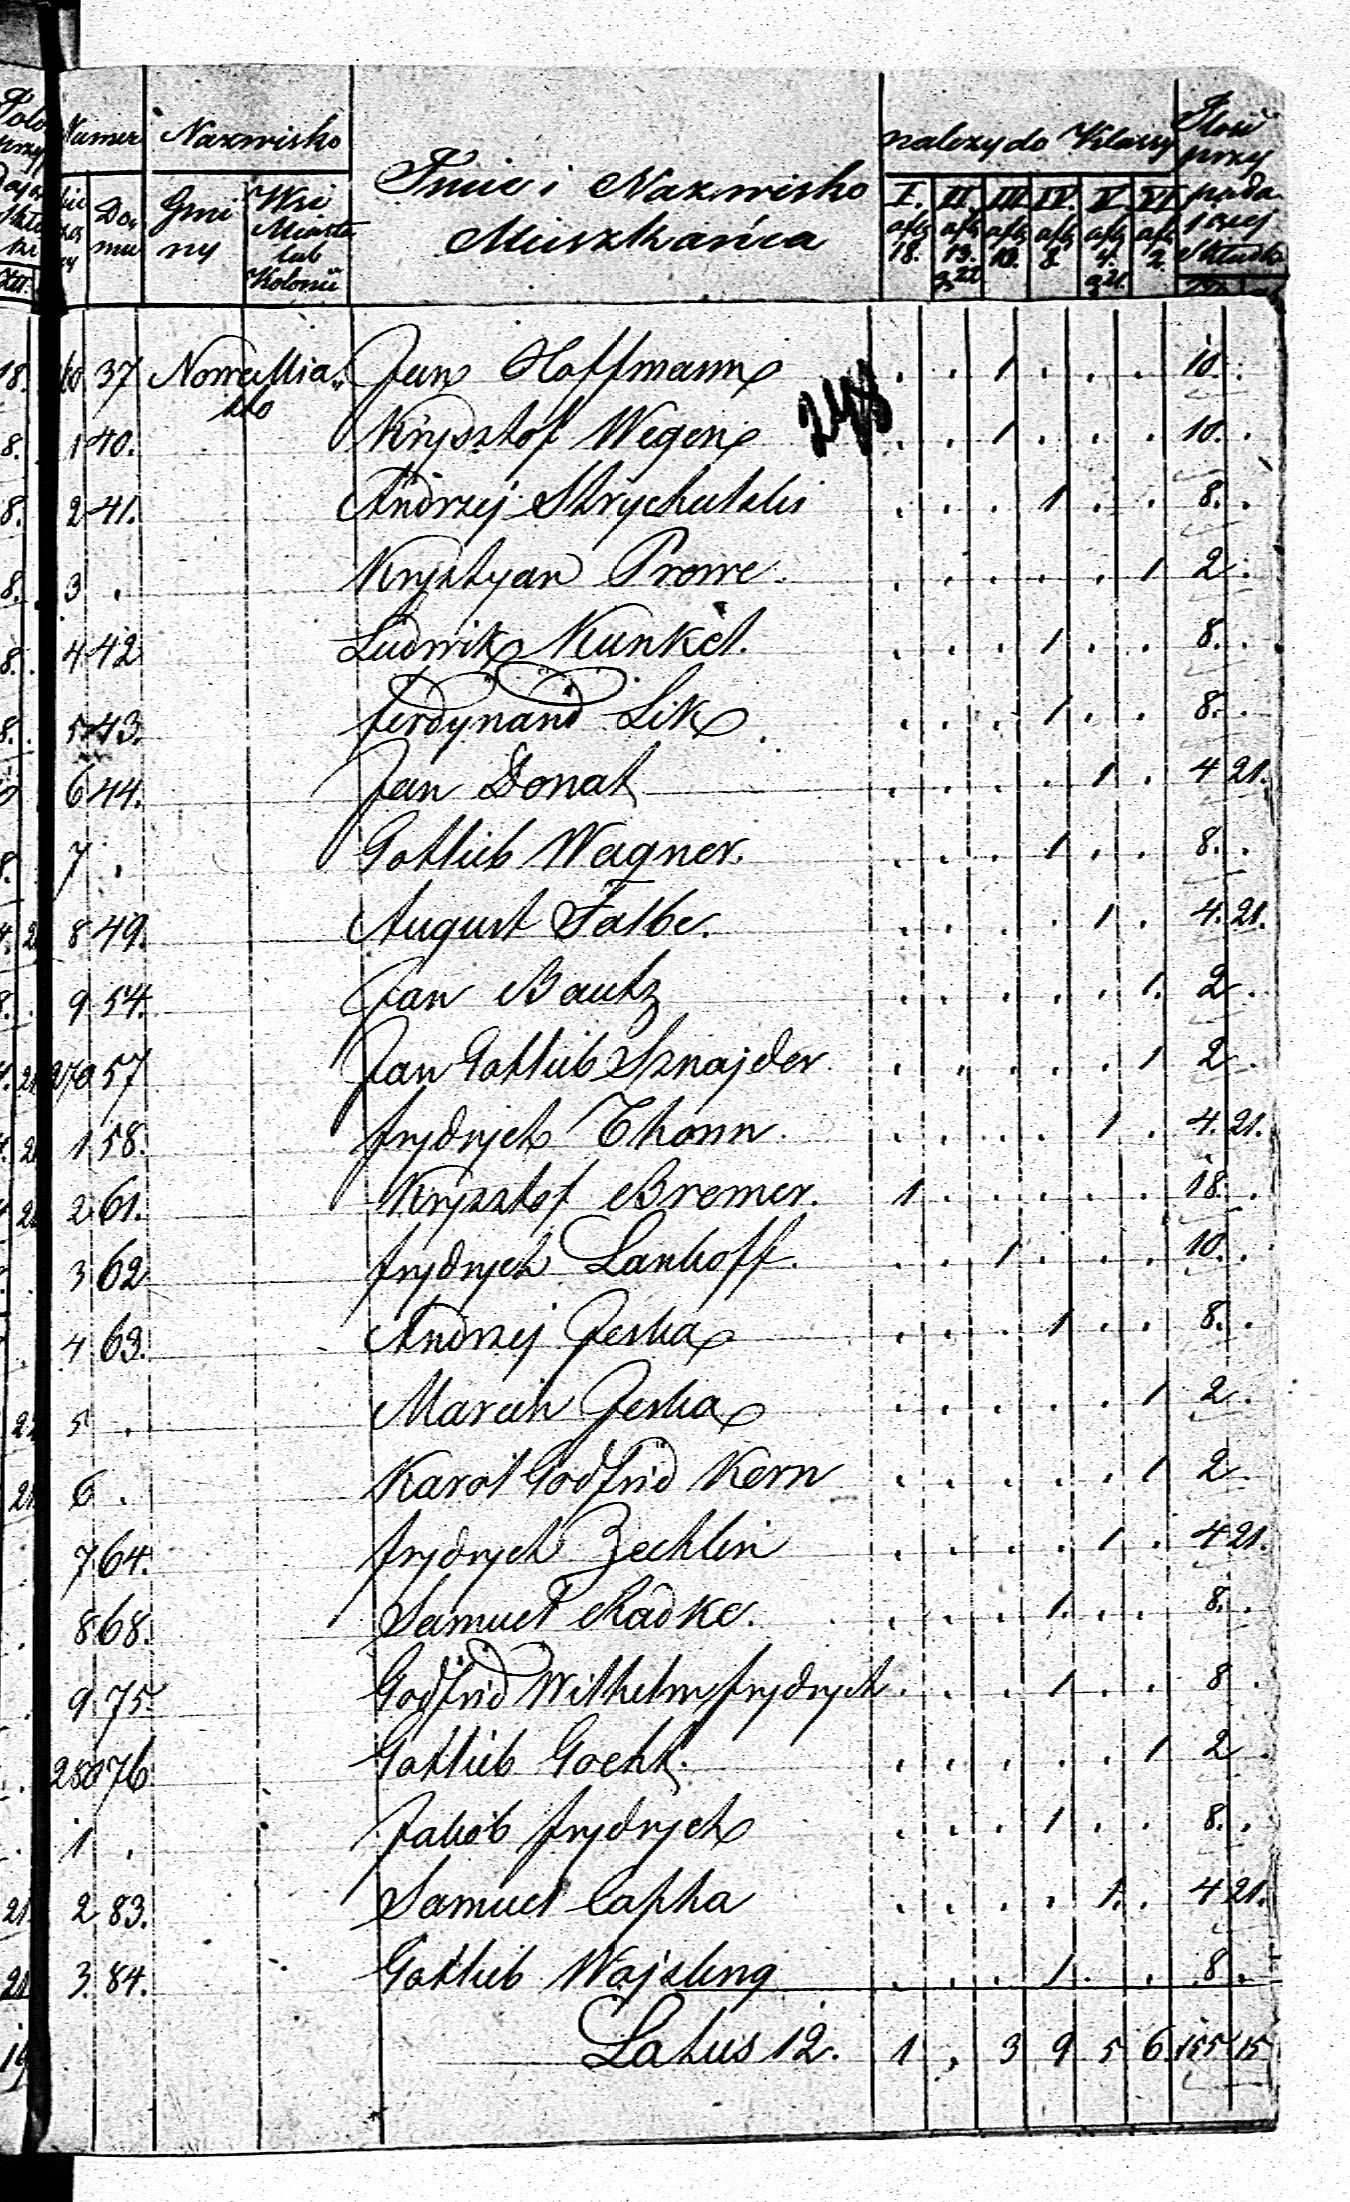 Numer Nazwisko Imie i Nazwisko Mieszkańca należy do Klassy Ilość przy
Do mu Gmi ny Wsi Miasta lub Kolonii I. II. III. IV. V. VI. pada jącej Składki
18. 13. 10. 8. 4. 2.
37 Nowe Mia„ Jan Hoffmann . . 1 . . . 10. .
sto 248
1 40. Krysztof Wegen . . 1 . . . 10. .
2 41. Andrzej Strychulski . . . 1 . . 8. .
3 . Krystyan Prowe . . . . . 1 2 .
4 42 Ludwik Kunkel. . . . 1 . . 8. .
5 43. Ferdynand Lik . . . 1 . . 8. .
6 44. Jan Donat . . . . 1 . 4 21.
7 . Gotlieb Wagner. . . . 1 . . 8. .
8 49. August Falbe. . . . . 1 . 4. 21.
9 54. Jan Bautz . . . . . 1. 2 .
270 57 Jan Gotlieb Sznajder . . . . . 1 2 .
1 58. Frydrych Thonn . . . . 1 . 4. 21.
2 61. Krysztof Bremer. 1 . . . . . 18. .
3 62 Frydrych Lankoff. . . 1 . . . 10. .
4 63. Andrzej Jeska . . . 1 . . 8. .
5 . Marcin Jeska . . . . . 1 2 .
6 . Karol Godfrid Kern . . . . . 1 2 .
7 64. Frydrych Zechlin . . . . 1 . 4 21.
8 68. Samuel Radke. . . . 1. . . 8. .
9. 75. Godfrid Wilhelm Frydrych . . . 1 . . 8 .
280 76 Gotlieb Goehk. . . . . . 1 2 .
1 . Jakob Frydrych . . . 1 . . 8. .
2 83. Samuel Capka . . . . 1. . 4 21.
3. 84. Gotlieb Wajsling . . . 1. . . 8 .
Latus 12. 1 . 3 9 5 6 155 15